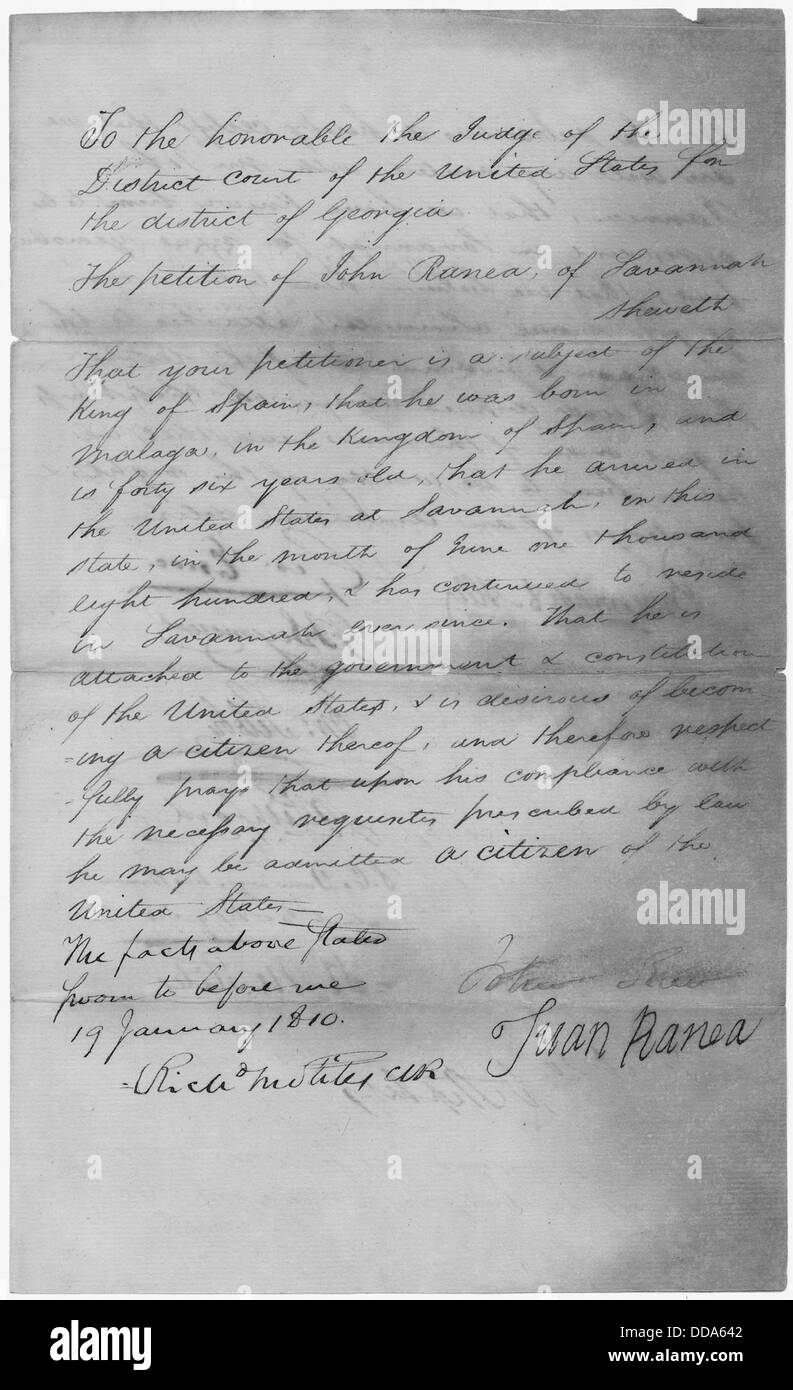 To the honorable the Judge of the
District court of the United States for
the district of Georgia
The petition of John Ranea, of Savannah
Sheweth
That your petitioner is a subject of the
King of Spain, that he was born in
Malaga, in the Kingdom of Spain, and
is forty six years old, that he arrived in
the United States at Savannah, in this
state, in the month of June one thousand
eight hundred, & has continued to reside
in Savannah ever since. That he is
attached to the government & constitution
of the United States, & is desirous of becom-
-ing a citizen thereof, and therefore respect
-fully prays that upon his compliance with
the necessary requisites prescribed by law
he may be admitted a citizen of the
United States—
The facts above Stated
sworn to before me
19 January 1810.
John
Juan Ranea
Richd clk
alamy
Image ID: DDA642
www.alamy.com